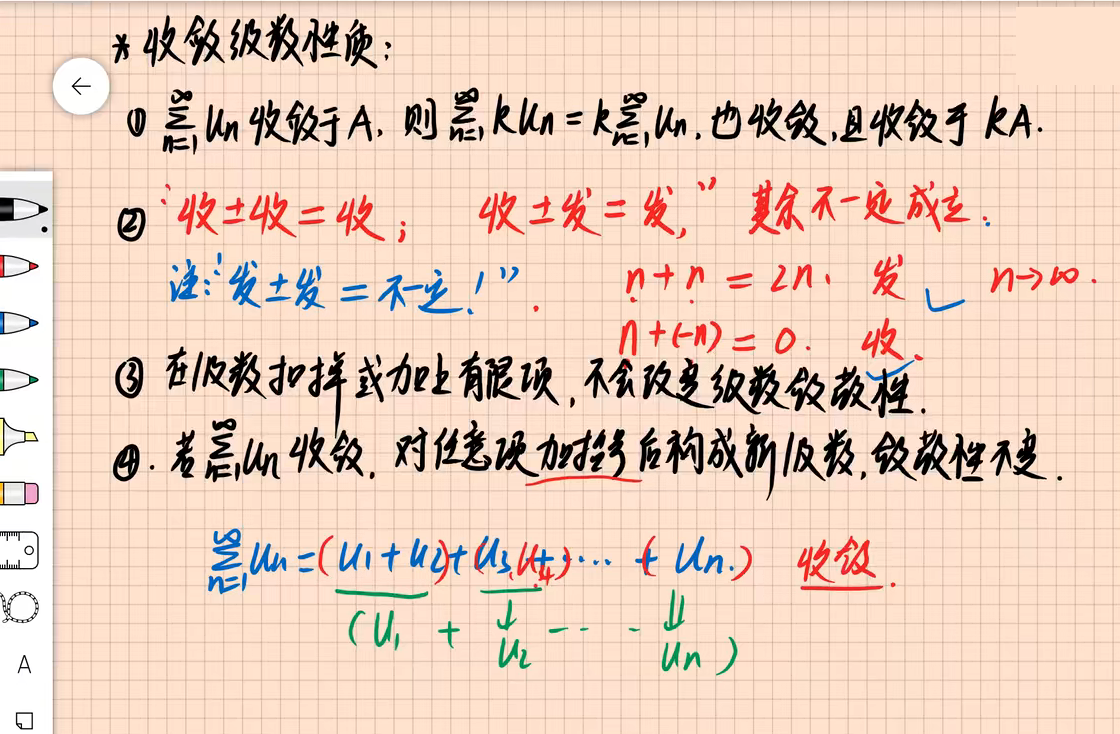 * 收敛级数性质:
① ∑_{n=1}^{∞} Un 收敛于A, 则 ∑_{n=1}^{∞} kUn = k∑_{n=1}^{∞} Un, 也收敛, 且收敛于 kA.
② "收±收=收; 收±发=发," 其余不一定成立.
注:"发±发=不一定!". n+n=2n. 发 ✓ n→∞.
n+(-n)=0. 收. ✓
③ 在级数扣掉或加上有限项, 不会改变级数敛散性.
④. 若 ∑_{n=1}^{∞} Un 收敛, 对任意项加括号后构成新级数, 敛散性不变.
∑_{n=1}^{∞} Un = (U1+U2)+(U3+U4)+··· + (Un.) 收敛.
(U1 + ↓ - - - - ⇓
U2 Un)
A